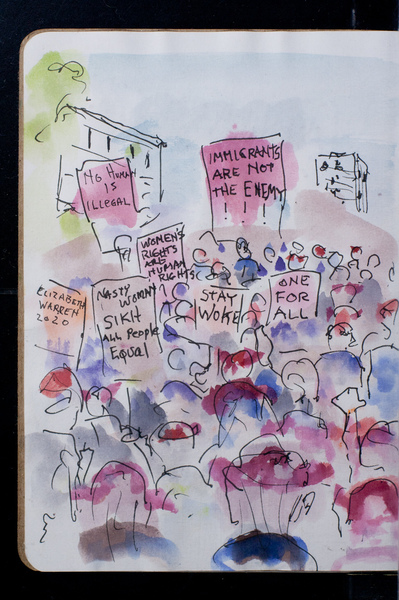 NO HUMAN
IS
ILLEGAL
IMMIGRANTS
ARE NOT
THE ENEMY
! ! !
WOMEN'S
RIGHTS
ARE
HUMAN
RIGHTS
ELIZABETH
WARREN
2020
NASTY
WOMAN
SIKH
ALL PEOPLE
EQUAL
STAY
WOKE
ONE
FOR
ALL